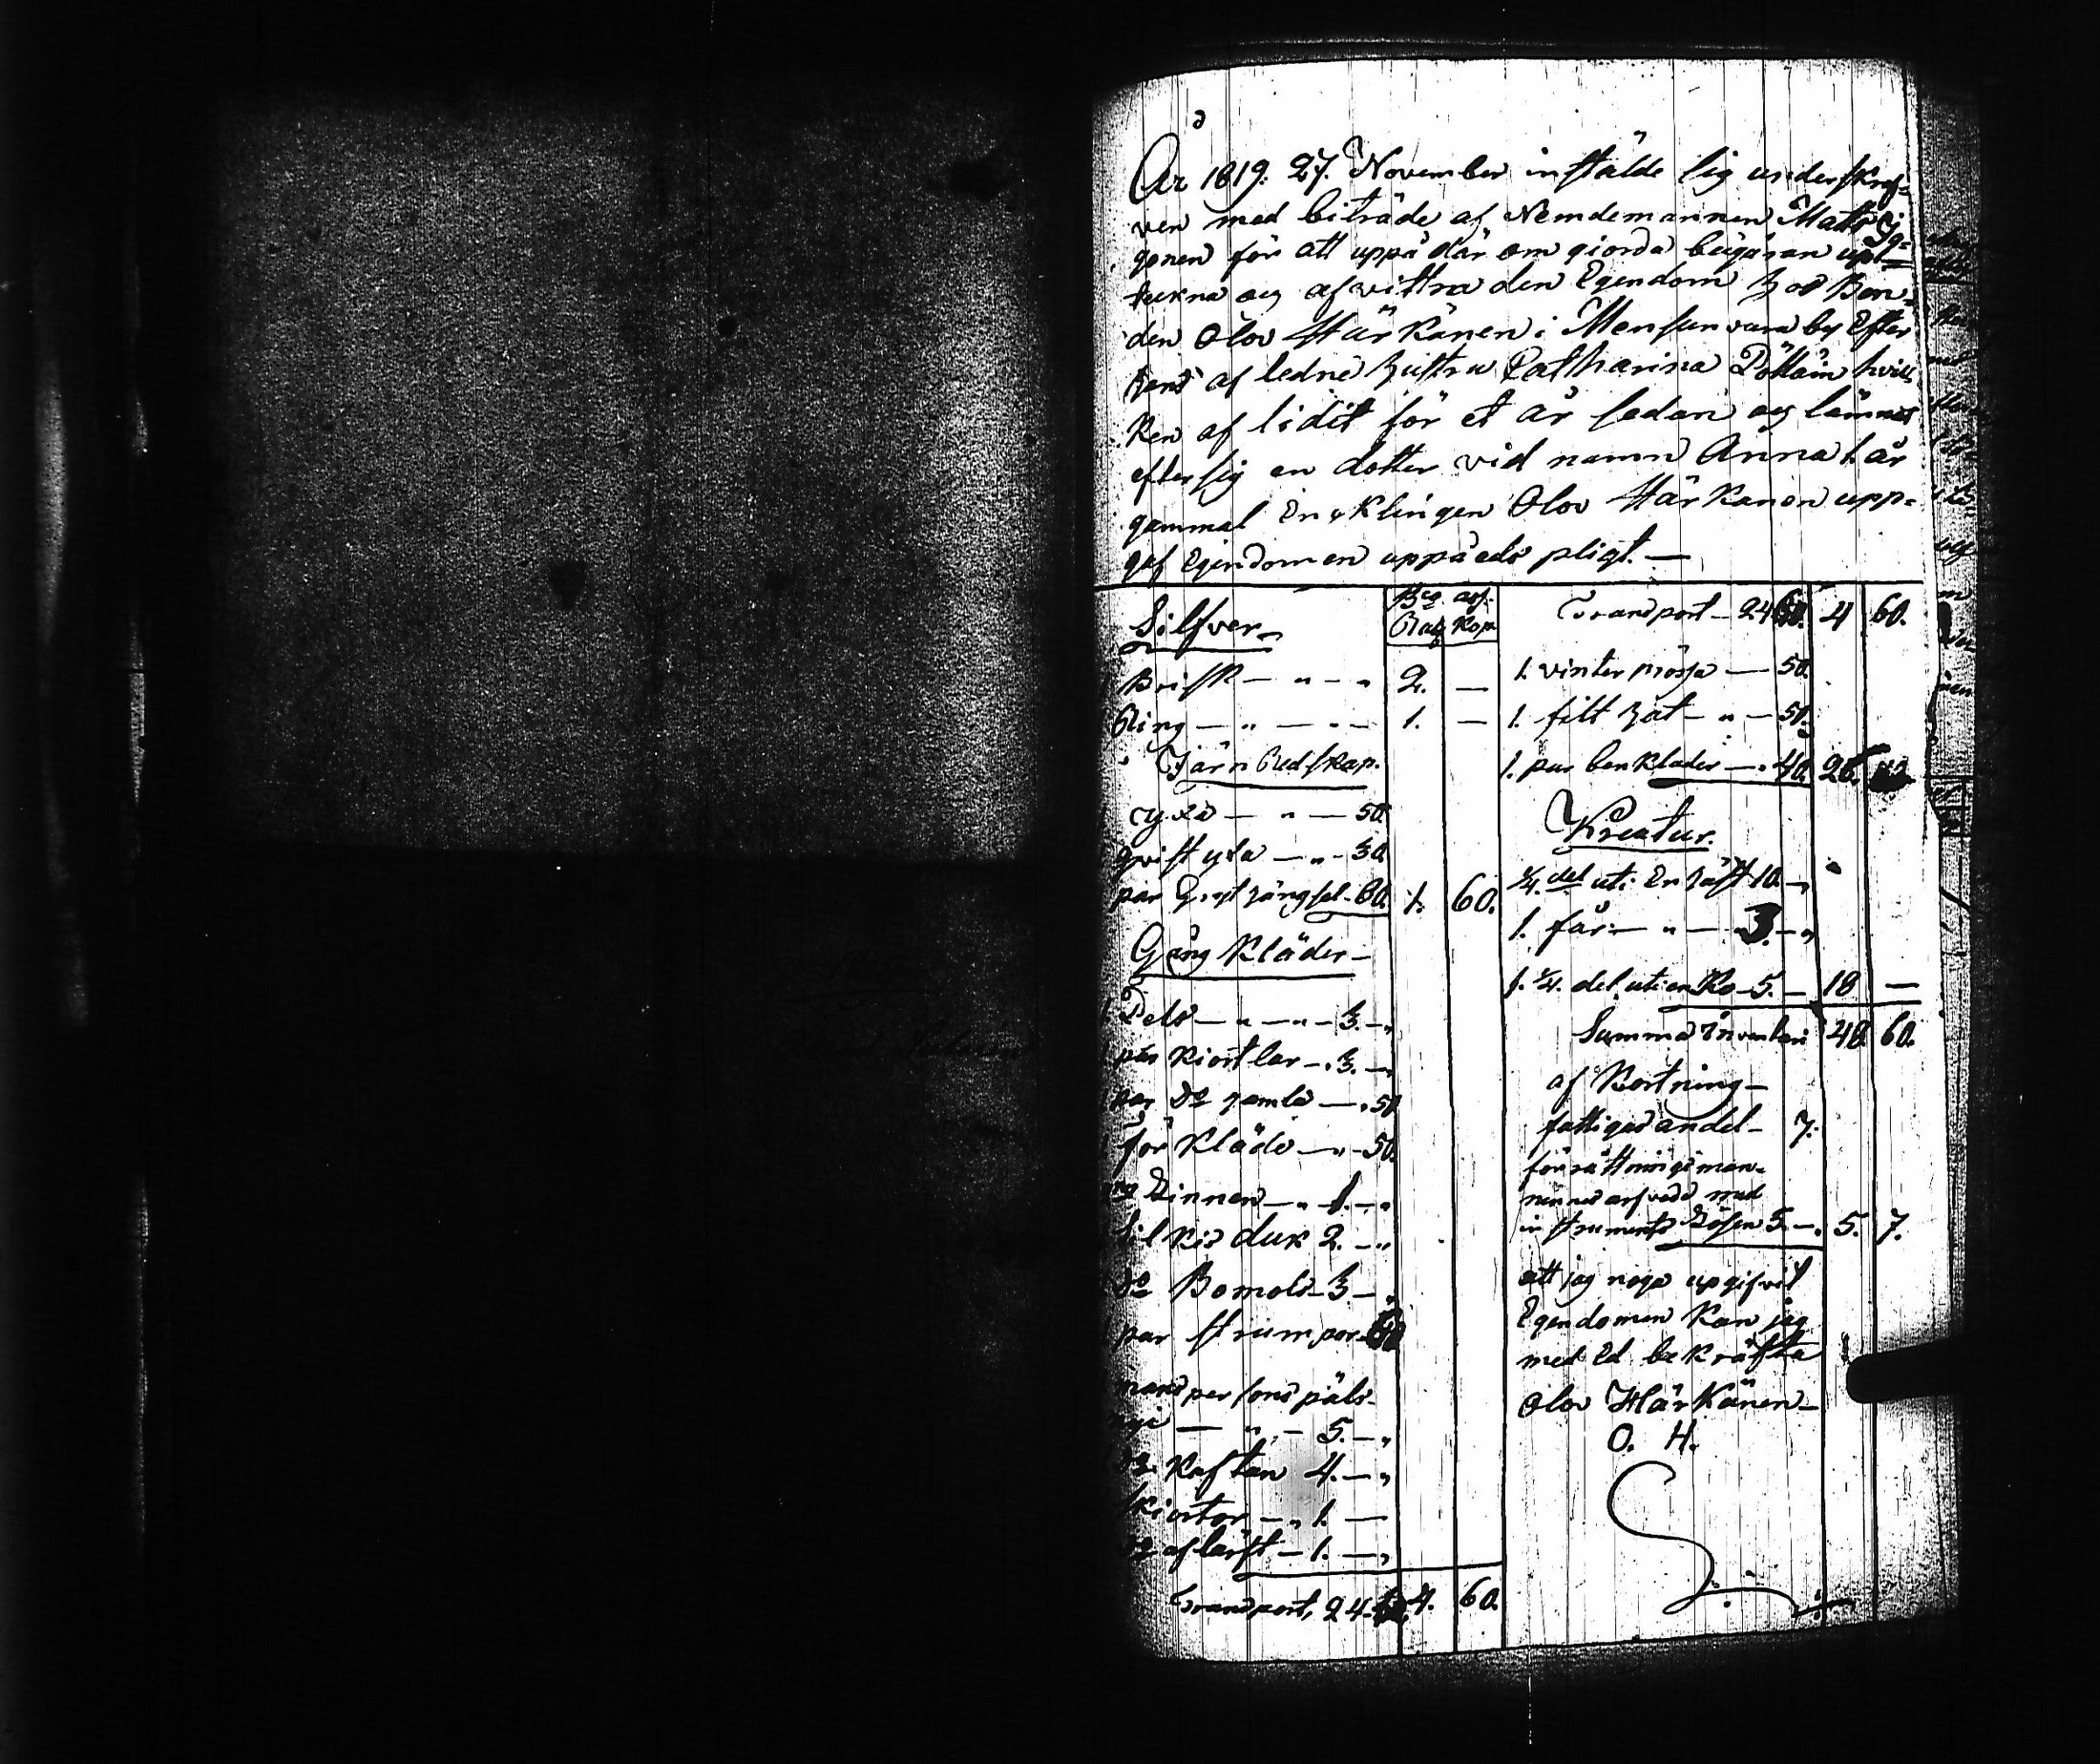 År 1819. 27. November instälde sig underskref-
ven med biträde af Nemdemannen Matts
gonen för att uppå där om giorda begäran upt
tekna og afvittra den Egendom hos Bon-
den Olov Härkänen i Mensunvara by Efter
hans af ledne hustru Catharina Pöllöin hvil
ken af lidit för et år sedan og lämnat
efter sig en dotter vid namn Anna 1. år
gammal Enklingen Olov Härkänen upp-
gaf Egendomen uppå eds pligt. —
Silfver Bco. ass. Rub Kop.
Brisk — " — " 2. —
Ring — " — " — 1. —
Järn Redskap.
yxa — " — 50.
qvist yxa — " - 30.
par hängsel - 80. 1. 60.
Gång Kläder —
Pels — " — " — 3. — "
par Kiortlar — . 3. — "
par Do gamla — . 50
för Kläde — " — 50.
Linnen — " 1. — "
Silkis duk 2. — "
Do Bomols — 3 — "
par strumpor — 60
mans persons päls
nyi — " — 5. — "
Kaftan 4. — "
skiortor — " 1. —
af lärft — 1. — "
Transport, 24. 4. 60.
Transport — 24 4 60.
1. vinter mössa — 50.
1. filt hat — " — 50.
1. par benkläder — . 40. 26.
Kreatur.
1/4. del uti En häst 10. — "
1. får — " — 3. — "
1. 1/4. del uti en Ko — 5. — 18 —
Summa Inventari 48. 60.
af Kortning —
fattigas andel — 7.
förrättnings man-
nennes arfvode med
instruments Lösen 5. — . 5. 7.
att jag noga upgifvit
Egendomen Kan jag
med Ed bekräfta
Olov Härkänen —
O. H.